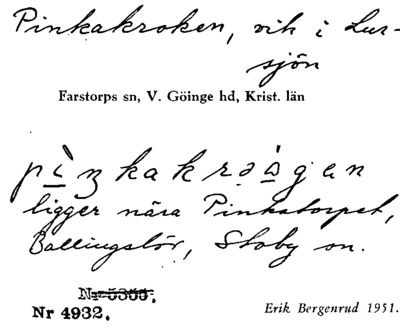 Pinkakroken, vik i Lur-
sjön
Farstorps sn, V. Göinge hd, Krist. län
ligger nära Pinkatorpet,
Ballingslöv, Stoby sn.
Nr 5355.
Nr 4932.
Erik Bergenrud 1951.